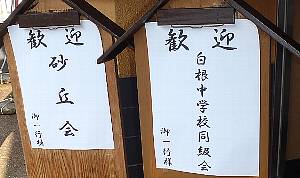 歓迎
砂丘会
御一行様
歓迎
白根中学校同級会
御一行様